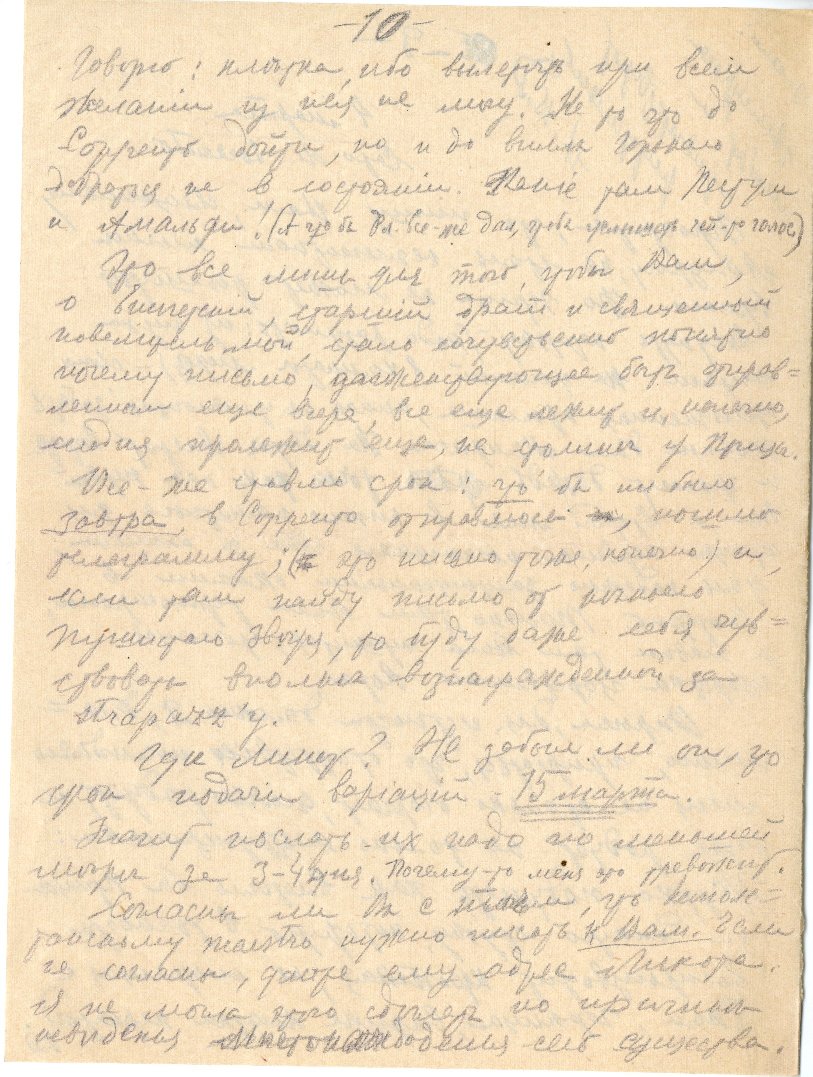 -10-
Говорю: клѣтка, ибо вылетѣть при всем
желаніи из нея не могу. Не то что до
Сорренто дойти, но и до виллы Горькаго
добраться не в состояніи. Какіе там Пестум
и Амальфи! (А что бы Вл. все-же дал, чтобы услышать чей-то голос)
Это все лишь для того, чтобы Вам,
о старшій брат и священный
повелитель мой, стало понятно
почему письмо, долженствующее быть отправ=
ленным еще вчера, все еще лежит и, конечно,
сегодня пролежит еще, на столике у Принца.
Все-же ставлю срок: что бы ни было
завтра, в Сорренто отправлюсь, пошлю
телеграмму; (это письмо тоже, конечно) и,
если там найду письмо от
пушистаго Звѣря, то буду даже себя чув=
ствовать вполнѣ вознагражденной за
Где Ликот? Не забыл ли он, что
срок подачи варіацій - 15 марта.
Значит послать их надо по меньшей
мѣрѣ за 3-4 дня. Почему-то меня это тревожит.
Согласны ли Вы с тѣм, что
нужно писать к Вам. Если
не согласны, дайте ему адрес Ликота.
Я не могла этого сдѣлать по причинѣ
невидѣнья сего существа.